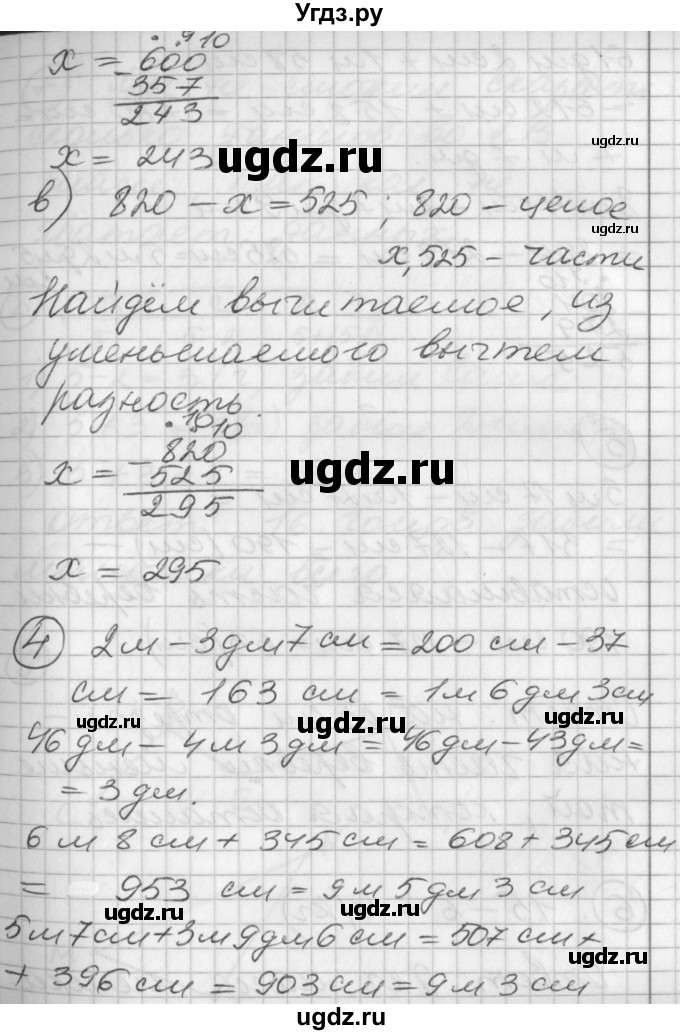 Угдз.ру
. 9 10
x = - 600
357
243
x = 243
ugdz.ru
в) 820 - x = 525 ; 820 - целое
ugdz.ru
x, 525 - части
Найдём вычитаемое, из
уменьшаемого вычтем
разность.
. 10 10
x = - 820
525
295
ugdz.ru
ugdz.ru
x = 295
4 2м - 3дм7см = 200 см - 37
см = 163 см = 1м 6дм 3см
ugdz.ru
ugdz.ru
46дм - 4м 3дм = 46дм - 43дм =
= 3дм.
ugdz.ru
6м 8см + 345см = 608 + 345см
= 953 см = 9м 5дм 3см
ugdz.ru
ugdz.ru
5м7см + 3м9дм6см = 507см +
+ 396см = 903см = 9м 3см
ugdz.ru
ugdz.ru